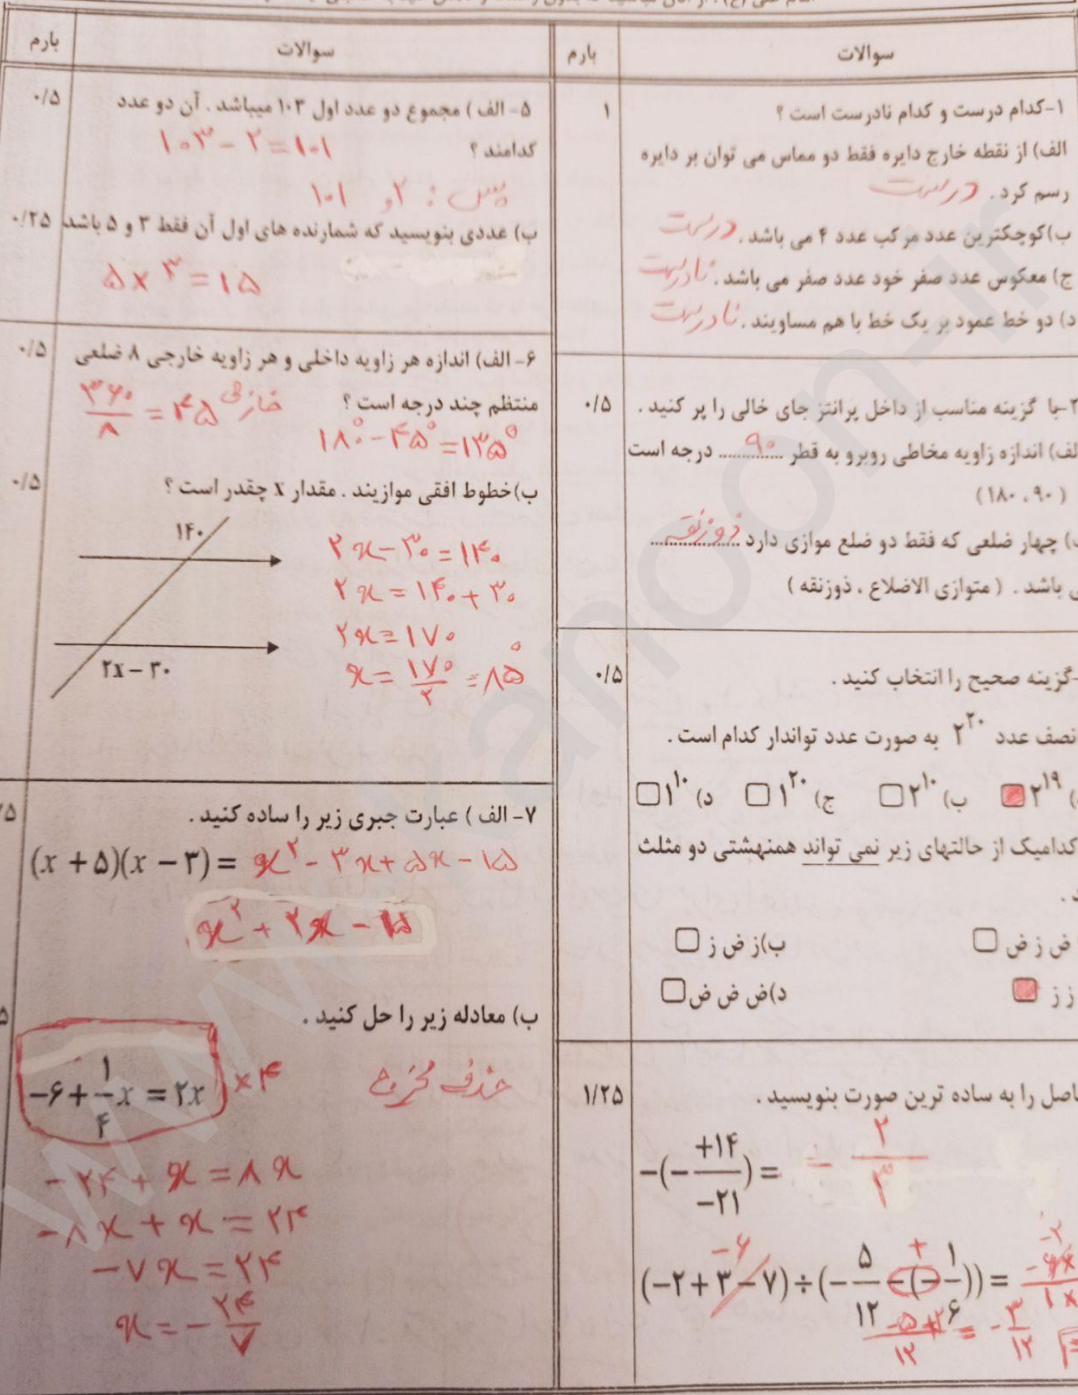 سوالات
بارم
۱-کدام درست و کدام نادرست است ؟
۱
الف) از نقطه خارج دایره فقط دو مماس می توان بر دایره
رسم کرد . درست
ب)کوچکترین عدد مرکب عدد ۴ می باشد . درست
ج) معکوس عدد صفر خود عدد صفر می باشد . نادرست
د) دو خط عمود بر یک خط با هم مساویند . نادرست
۲-با گزینه مناسب از داخل پرانتز جای خالی را پر کنید .
۰/۵
الف) اندازه زاویه محاطی روبرو به قطر ....۹۰.... درجه است
( ۹۰ ، ۱۸۰ )
) چهار ضلعی که فقط دو ضلع موازی دارد ....ذوزنقه....
باشد . ( متوازی الاضلاع ، ذوزنقه )
-گزینه صحیح را انتخاب کنید .
۰/۵
نصف عدد ۲^۲۰ به صورت عدد تواندار کدام است .
) ۲^۱۹ ب) ۲^۱۰ ج) ۱^۲۰ د) ۱^۱۰
کدامیک از حالتهای زیر نمی تواند همنهشتی دو مثلث
ض ز ض ب)ز ض ز
ز ز د)ض ض ض
را به ساده ترین صورت بنویسید .
۱/۲۵
-(- +۱۴/-۲۱) = - ۲/۳
-۶ +
(-۲+۳-۷)÷(- ۵/۱۲ -(- ۱/۶)) =
-۵+۲/۱۲ = - ۳/۱۲
سوالات
بارم
۵- الف ) مجموع دو عدد اول ۱۰۳ میباشد . آن دو عدد
۰/۵
کدامند ؟ ۱۰۳ - ۲ = ۱۰۱
پس : ۲ و ۱۰۱
ب) عددی بنویسید که شمارنده های اول آن فقط ۳ و ۵ باشد
۰/۲۵
۵ × ۳ = ۱۵
۶- الف) اندازه هر زاویه داخلی و هر زاویه خارجی ۸ ضلعی
۰/۵
منتظم چند درجه است ؟ خارجی ۳۶۰/۸ = ۴۵
۱۸۰° - ۴۵° = ۱۳۵°
ب)خطوط افقی موازیند . مقدار x چقدر است ؟
۰/۵
۱۴۰
۲x - ۳۰
۲x - ۳۰ = ۱۴۰
۲x = ۱۴۰ + ۳۰
۲x = ۱۷۰
x = ۱۷۰/۲ = ۸۵°
۷- الف ) عبارت جبری زیر را ساده کنید .
(x + ۵)(x - ۳) = x² - ۳x + ۵x - ۱۵
x² + ۲x - ۱۵
ب) معادله زیر را حل کنید .
-۶ + ۱/۴ x = ۲x ×۴ حذف مخرج
-۲۴ + x = ۸x
-۸x + x = ۲۴
-۷x = ۲۴
x = - ۲۴/۷